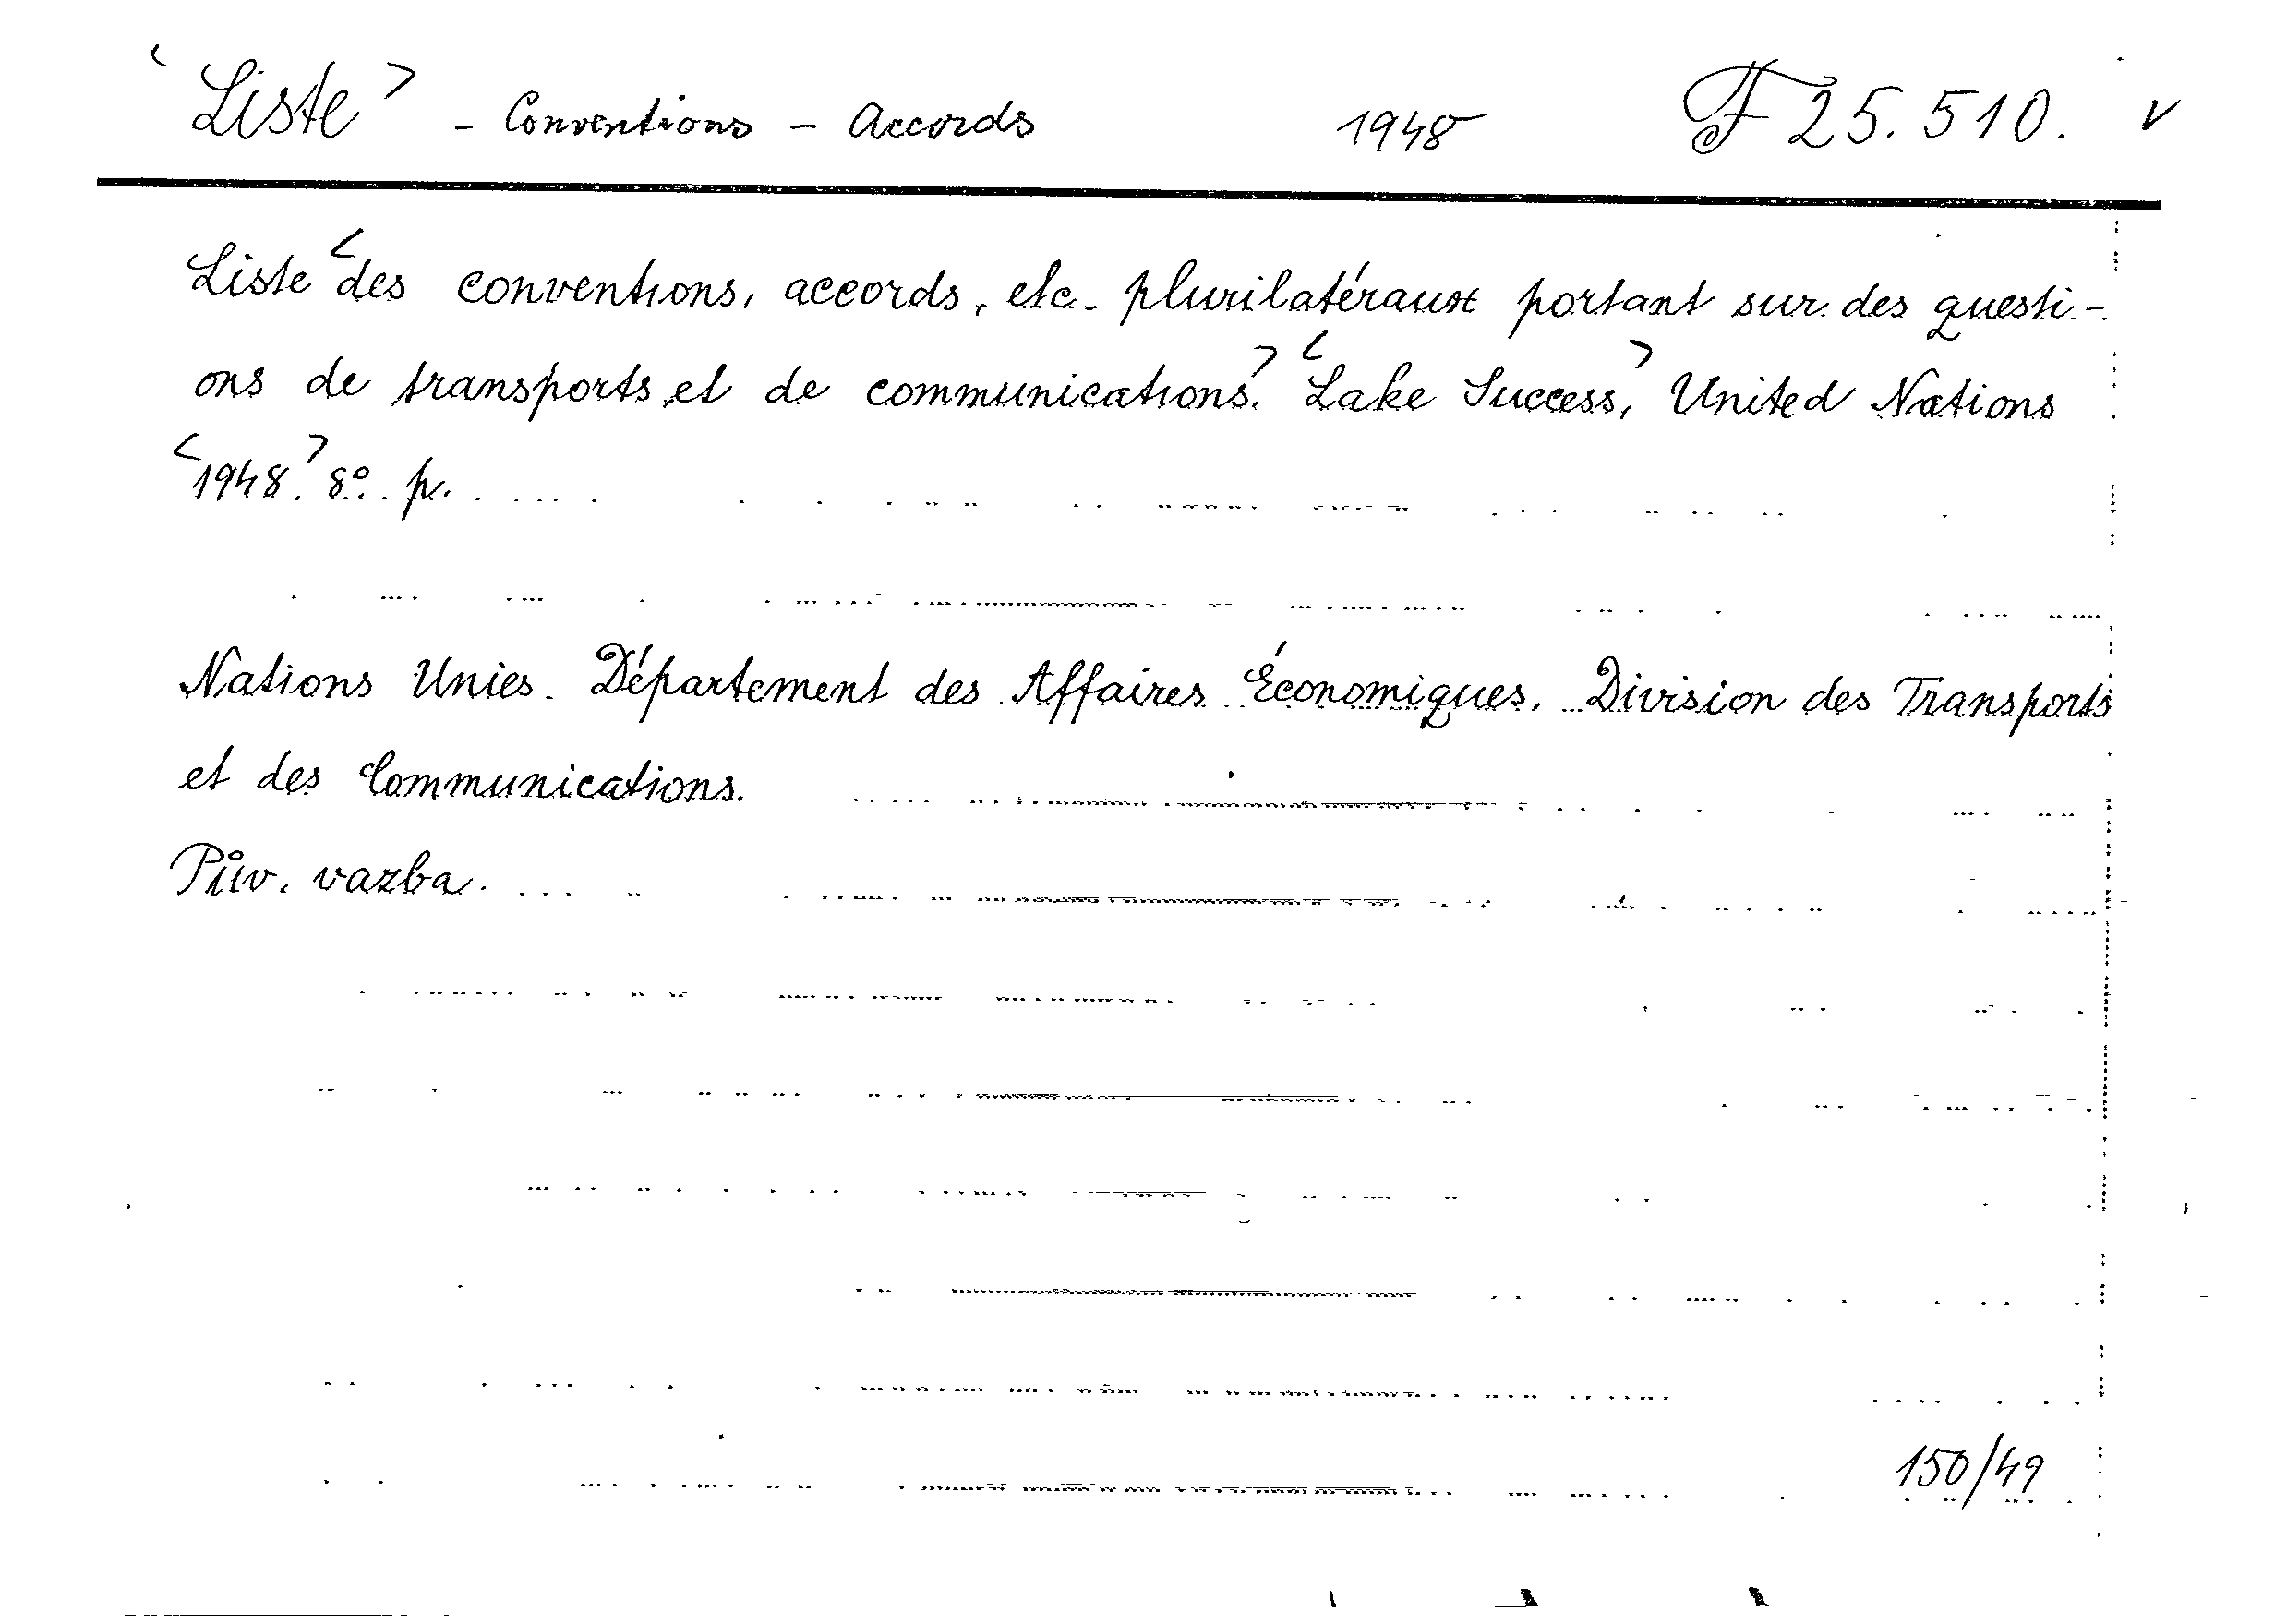 ‹Liste› - Conventions - Accords 1948 F 25.510. v
Liste ‹des conventions, accords, etc. plurilatéraux portant sur des questi-
ons de transports et de communications.› ‹Lake Success,› United Nations
‹1948.› 8°. p.
Nations Unies. Département des Affaires Économiques. Division des Transports
et des Communications.
Pův. vazba.
150/49